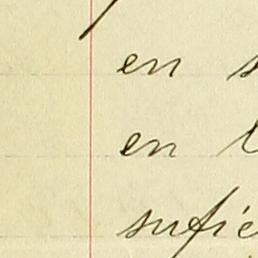 en
en
sufie